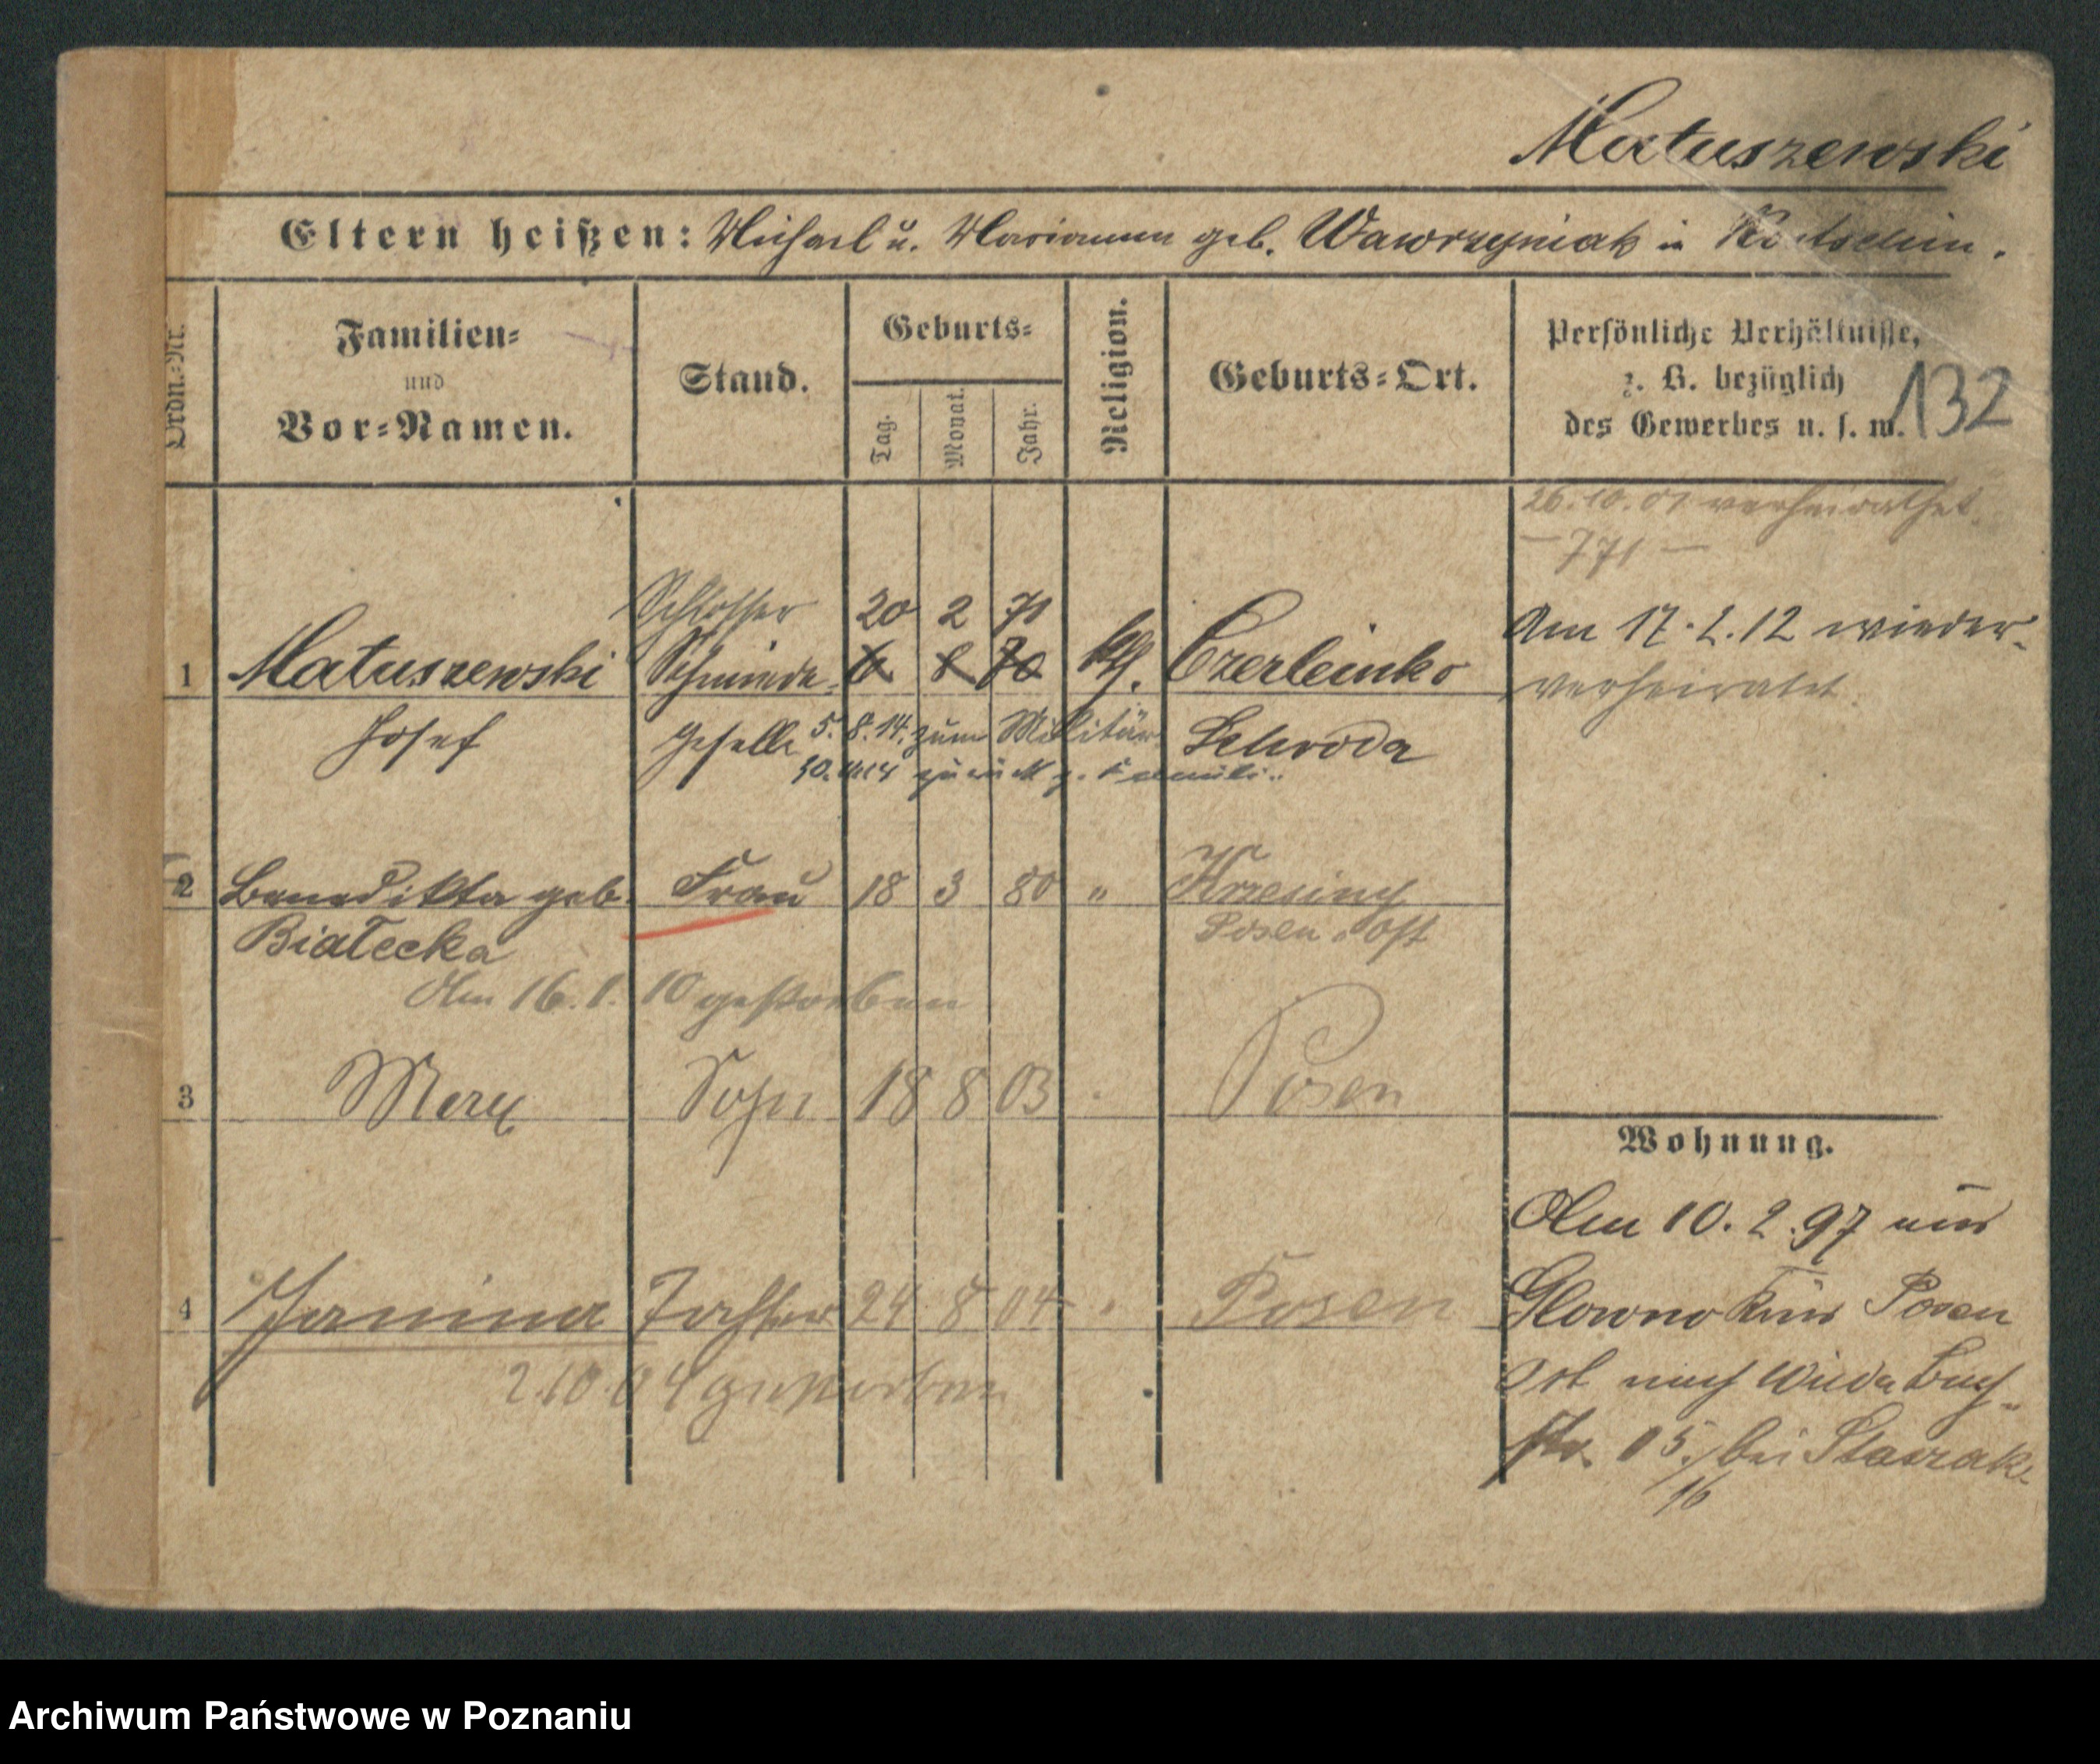 Matuszewski
Eltern heißen: Michael u. Marianna geb. Wawrzyniak in
Ordn.-Nr.
Familien-
und
Vor-Namen.
Stand.
Geburts-
Tag.
Monat.
Jahr.
Religion.
Geburts-Ort.
Persönliche Verhältnisse,
z. B. bezüglich
des Gewerbes u. s. w.
132
26.10.01 verheirathet
- 771 -
Schlosser 20 2 71
1 Matuszewski Schmiede- 6 8 70 kth. Czerleinko
Am 17.2.12 wieder-
verheiratet.
Josef Geselle 5.8.14. zum Militär Schroda
zurück z. Famili..
2 Benedikta geb. Frau 18 3 80 " Krzesiny
Białecka Posen Ost
Am 16.1.10 gestorben
3 Marx Sohn 18 8 03 Posen
Wohnung.
Am 10.2.97 aus
4 Janina Tochter 24 8 04 Posen
Glowno Kreis Posen
2.10.04 gestorben
Ost nach Wilda Bach-
str. 15./16 bei